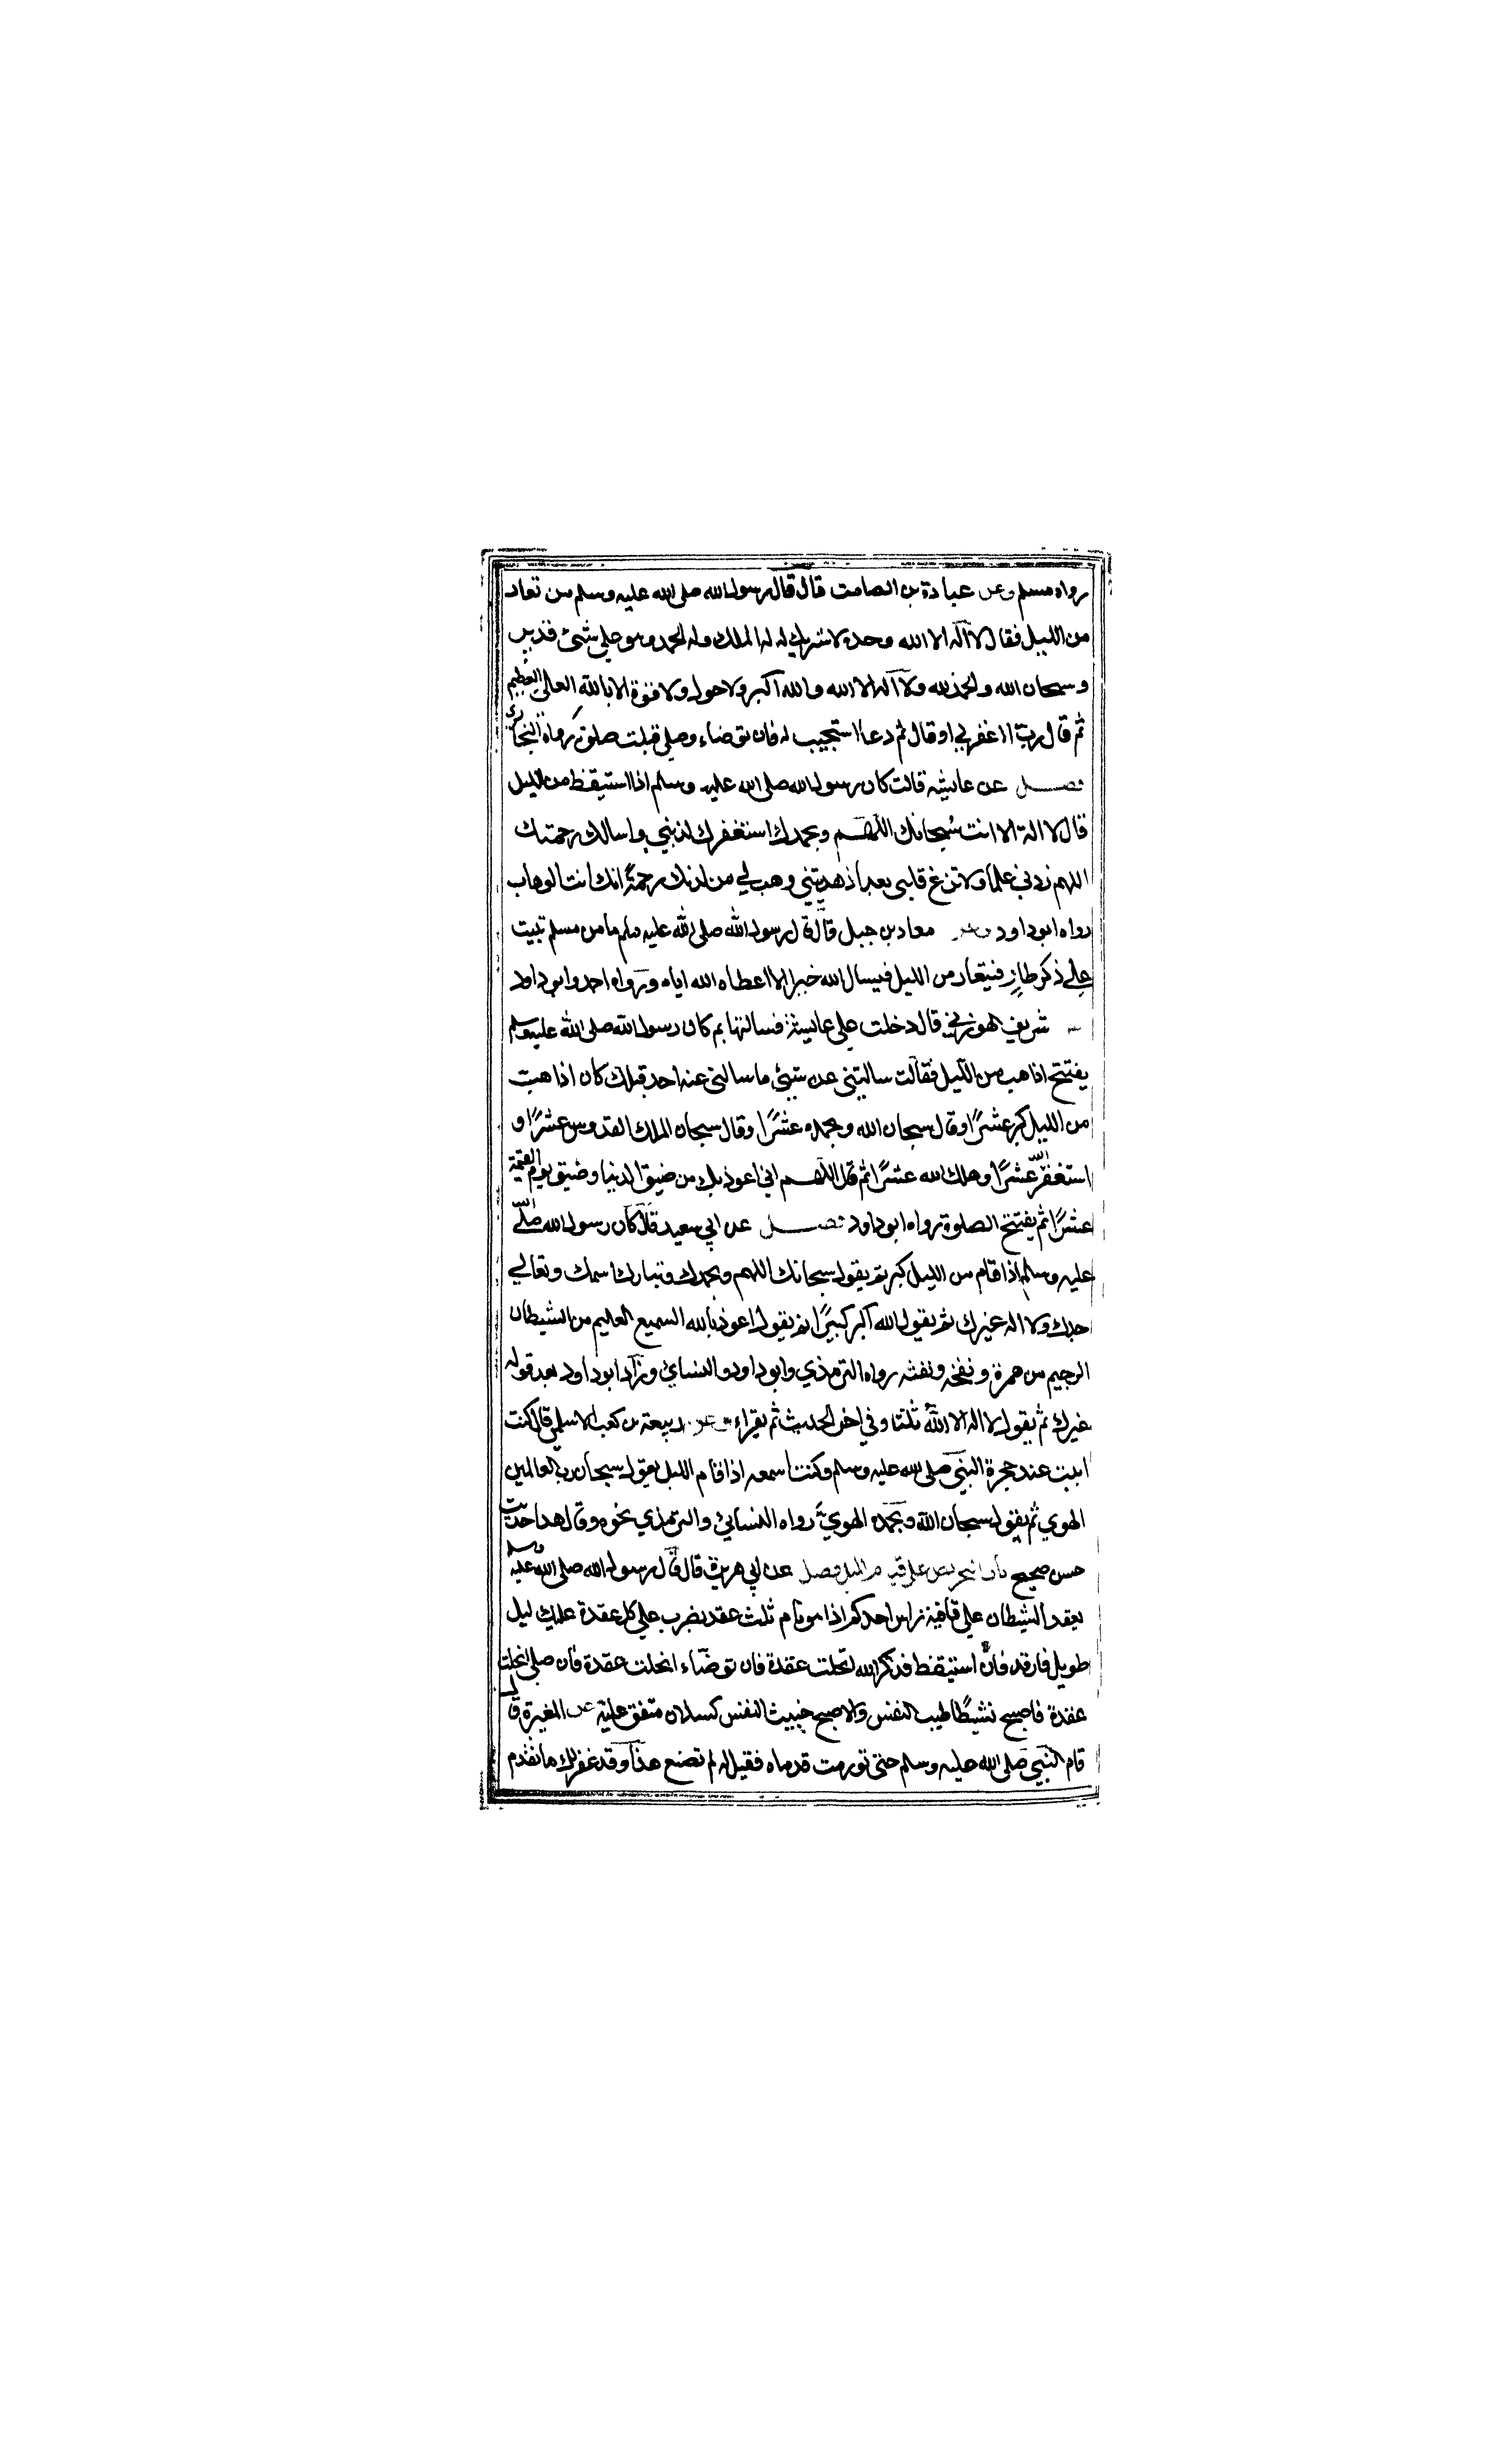 رواه مسلم وعن عبادة بن الصامت قال قال رسول الله صلى الله عليه وسلم من تعار
من الليل فقال لا اله الا الله وحده لا شريك له له الملك وله الحمد وهو على شئ قدير
وسبحان الله والحمد لله ولا اله الا الله والله اكبر ولا حول ولا قوة الا بالله العالى العظيم
ثم قال رب اغفر لي او قال ثم دعا استجيب له فان توضاء وصلى قبلت صلوته رواه البخاري
فصل عن عايشة قالت كان رسول الله صلى الله عليه وسلم اذا استيقظ من الليل
قال لا اله الا انت سبحانك اللهم وبحمدك استغفرك لذنبي واسالك رحمتك
اللهم زدني علما ولا تزغ قلبي بعد اذ هديتني وهب لي من لدنك رحمة انك انت الوهاب
رواه ابو داود وعن معاذ بن جبل قال قال رسول الله صلى الله عليه وسلم ما من مسلم تبيت
على ذكر طاهر فيتعار من الليل فيسال الله خيرا الا اعطاه الله اياه ورواه احمد وابو داود
شريق الهوزني قال دخلت على عايشة فسالتها بم كان رسول الله صلى الله عليه وسلم
يفتتح اذا هب من الليل فقالت سالتني عن شيئ ما سالني عنه احد قبلك كان اذا هب
من الليل كبر عشرًا وقال سبحان الله وبحمده عشرًا وقال سبحان الملك القدوس عشرًا و
استغفر الله عشرًا وهلل الله عشرًا ثم قال اللهم اني اعوذ بك من ضيق الدنيا وضيق يوم القيمة
عشرًا ثم يفتتح الصلوة رواه ابو داود فصل عن ابي سعيد قال كان رسول الله صلى الله
عليه وسلم اذا قام من الليل كبر ثم يقول سبحانك اللهم وبحمدك وتبارك اسمك وتعالي
جدك ولا اله غيرك ثم يقول الله اكبر كبيرًا ثم يقول اعوذ بالله السميع العليم من الشيطان
الرجيم من همزة ونفخه ونفثه رواه الترمذي وابو داود والنسائي وزاد ابو داود بعد قوله
غيرك ثم يقول لا اله الا الله ثلثا وفي اخر الحديث ثم يقراء وعن ربيعة بن كعب الاسلمي قال كنت
ابيت عند حجرة النبي صلى الله عليه وسلم وكنت اسمعه اذا قام الليل يقول سبحان رب العالمين
الهوي ثم يقول سبحان الله وبحمده الهوي رواه النسائي والترمذي نحوه وقال هذا حديث
حسن صحيح باب التحريض على قيام الليل فصل عن ابي هريرة قال قال رسول الله صلى الله عليه وسلم
يعقد الشيطان على قافية راس احدكم اذا هو نام ثلث عقد يضرب على كل عقدة عليك ليل
طويل فارقد فان استيقظ فذكر الله انحلت عقدة فان توضاء انحلت عقدة فان صلى انحلت
عقدة فاصبح نشيطًا طيب النفس والا اصبح خبيث النفس كسلان متفق عليه عن المغيرة قال
قام النبي صلى الله عليه وسلم حتى تورمت قدماه فقيل له لم تصنع هذا وقد غفر لك ما تقدم